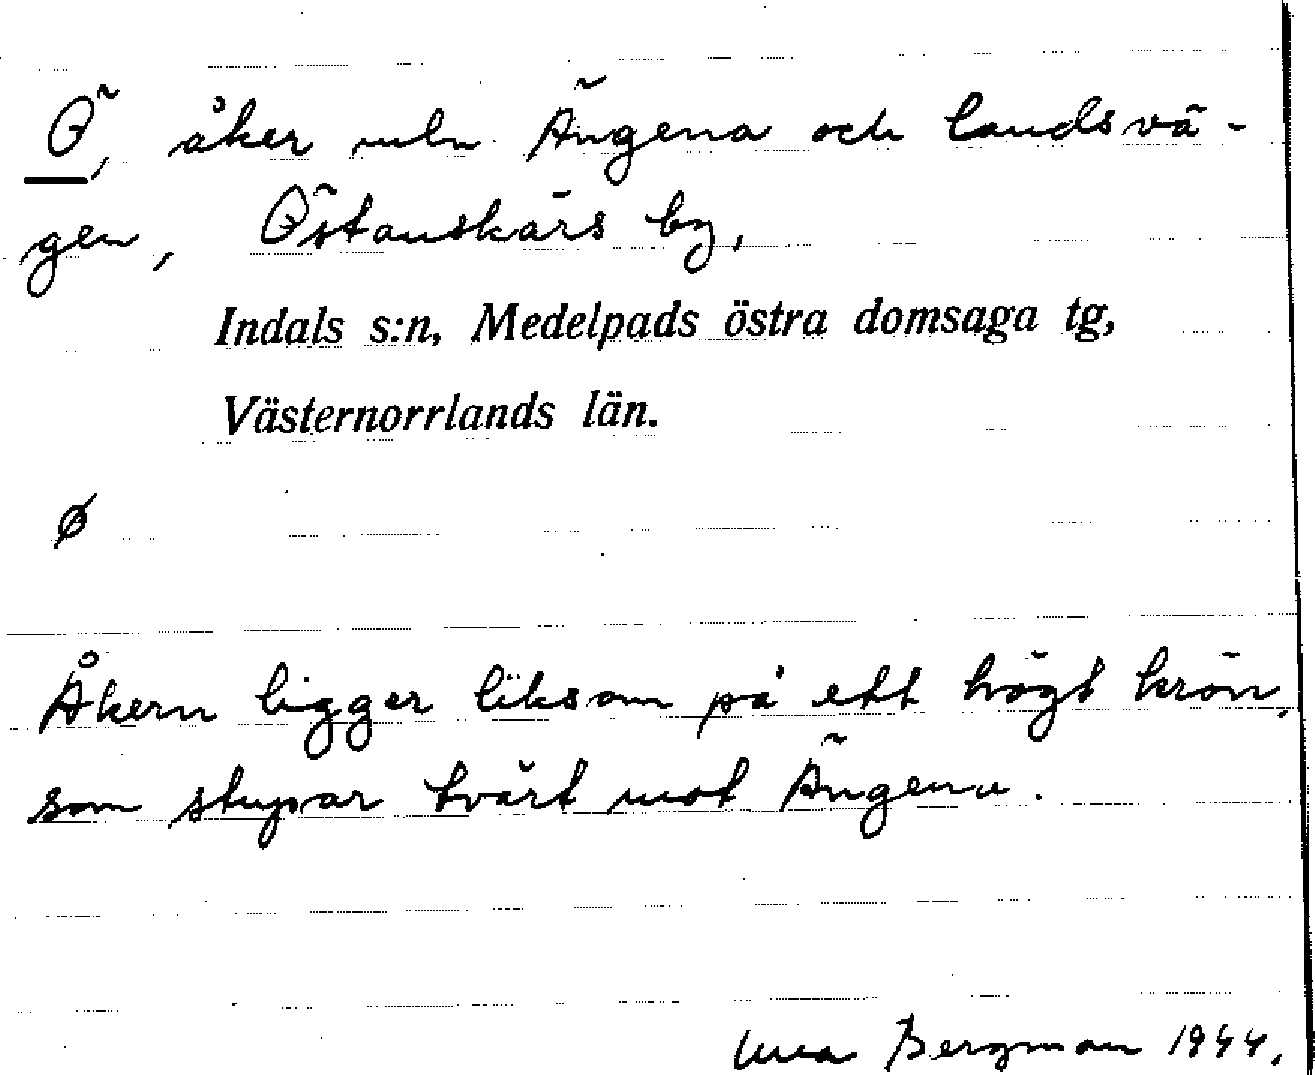 Ö, åker mln Ängena och landsvä-
gen, Östanskärs by,
Indals s:n, Medelpads östra domsaga tg,
Västernorrlands län.
ø
Åkern ligger liksom på ett högt krön,
som stupar tvärt mot Ängena.
Bergman 1944.